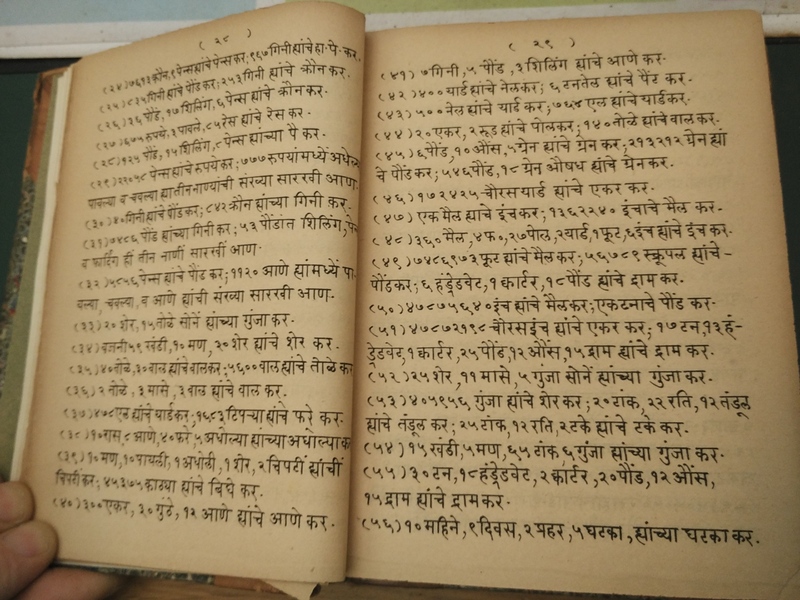 ( २८ )
(२४)७६१३ क्रौन, ९ पेन्स ह्यांचे पेन्स कर; ९६७ गिनी ह्यांचे हा. पे. कर.
(२५)८३५ गिनी ह्यांचे पौंड कर; २५३ गिनी ह्यांचे क्रौन कर.
(२६)३६ पौंड, १७ शिलिंग, ६ पेन्स ह्यांचे क्रौन कर.
(२७)६७५ रुपये, ३ पावले, ८५ रेस ह्यांचे रेस कर.
(२८)१२५ पौंड, १५ शिलिंग, ८ पेन्स ह्यांच्या पै कर.
(२९)२२०५८ पेन्स ह्यांचे रुपये कर; ७७७ रुपयांमध्यें अधेल्या
पावल्या व चवल्या ह्या तीन नाण्यांची संख्या सारखी आण.
(३०)४० गिनी ह्यांचे पौंड कर; ८४२ क्रौन ह्यांच्या गिनी कर.
(३१)७४८६ पौंड ह्यांच्या गिनी कर; ५३ पौंडांत शिलिंग,
व फार्दिंग हीं तीन नाणीं सारखीं आण.
(३२)५८५६ पेन्स ह्यांचे पौंड कर; ११२० आणे ह्यांमध्यें पा-
वल्या, चवल्या, व आणे ह्यांची संख्या सारखी आण.
(३३)२० शेर, १५ तोळे सोनें ह्यांच्या गुंजा कर.
(३४)वजनी ५९ खंडी, १० मण, २० शेर ह्यांचे शेर कर.
(३५)४० तोळे, ३० वाल ह्यांचे वाल कर; ५६०० वाल ह्यांचे तोळे कर
(३६)२ तोळे, ३ मासे, ३ वाल ह्यांचे वाल कर.
(३७)४७८ एल ह्यांचे यार्ड कर; १६८३ टिपऱ्या ह्यांचे फरे कर.
(३८)१० रास, ८ आणे, ४० फरे, ५ अधोल्या ह्यांच्या अधोल्या कर
(३९)१० मण, १० पायली, १ अधोली, १ शेर, २ चिपटीं ह्यांचीं
चिपटीं कर; ४५३७५ काठ्या ह्यांचे बिघे कर.
(४०)३०० एकर, ३० गुंठे, १२ आणे ह्यांचे आणे कर.
( २९ )
(४१)७ गिनी, ५ पौंड, ३ शिलिंग ह्यांचे आणे कर.
(४२)४०० यार्ड ह्यांचे नेल कर; ६ टन तेल ह्यांचे पैंट कर.
(४३)५०० नेल ह्यांचे यार्ड कर; ७६४ एल ह्यांचे यार्ड कर.
(४४)२० एकर, २ रूड ह्यांचे पोल कर; १४० तोळे ह्यांचे वाल कर.
(४५)६ पौंड, १० औंस, ५ ग्रेन ह्यांचे ग्रेन कर; २१३२१२ ग्रेन ह्यां
चे पौंड कर; ५४६ पौंड, १८ ग्रेन औषध ह्यांचे ग्रेन कर.
(४६)१७२४२५ चौरस यार्ड ह्यांचे एकर कर.
(४७)एक मैल ह्याचे इंच कर; १३६२२४० इंचाचे मैल कर.
(४८)३६० मैल, ४ फ०, २७ पोल, २ यार्ड, १ फूट, ६ इंच ह्यांचे इंच कर.
(४९)७४८६९७३ फूट ह्यांचे मैल कर; ५६७८९ स्क्रूपल ह्यांचे-
पौंड कर; ६ हंड्रेडवेट, १ क्वार्टर, १८ पौंड ह्यांचे द्राम कर.
(५०)४७८७५६४० इंच ह्यांचे मैल कर; एक टनाचे पौंड कर.
(५१)४७८७२१९८ चौरस इंच ह्यांचे एकर कर; १७ टन, १२ हं-
ड्रेडवेट, १ क्वार्टर, २५ पौंड, १२ औंस, १५ द्राम ह्यांचे द्राम कर.
(५२)२५ शेर, ११ मासे, ५ गुंजा सोनें ह्यांच्या गुंजा कर.
(५३)४०५९५६ गुंजा ह्यांचे शेर कर; २० टांक, २२ रति, १२ तंडूल
ह्यांचे तंडूल कर; २५ टांक, १२ रति, २ टके ह्यांचे टके कर.
(५४)१५ खंडी, ५ मण, ६५ टांक, ६ गुंजा ह्यांच्या गुंजा कर.
(५५)३० टन, १८ हंड्रेडवेट, २ क्वार्टर, २० पौंड, १२ औंस,
१५ द्राम ह्यांचे द्राम कर.
(५६)१० महिने, ९ दिवस, २ प्रहर, ५ घटका, ह्यांच्या घटका कर.